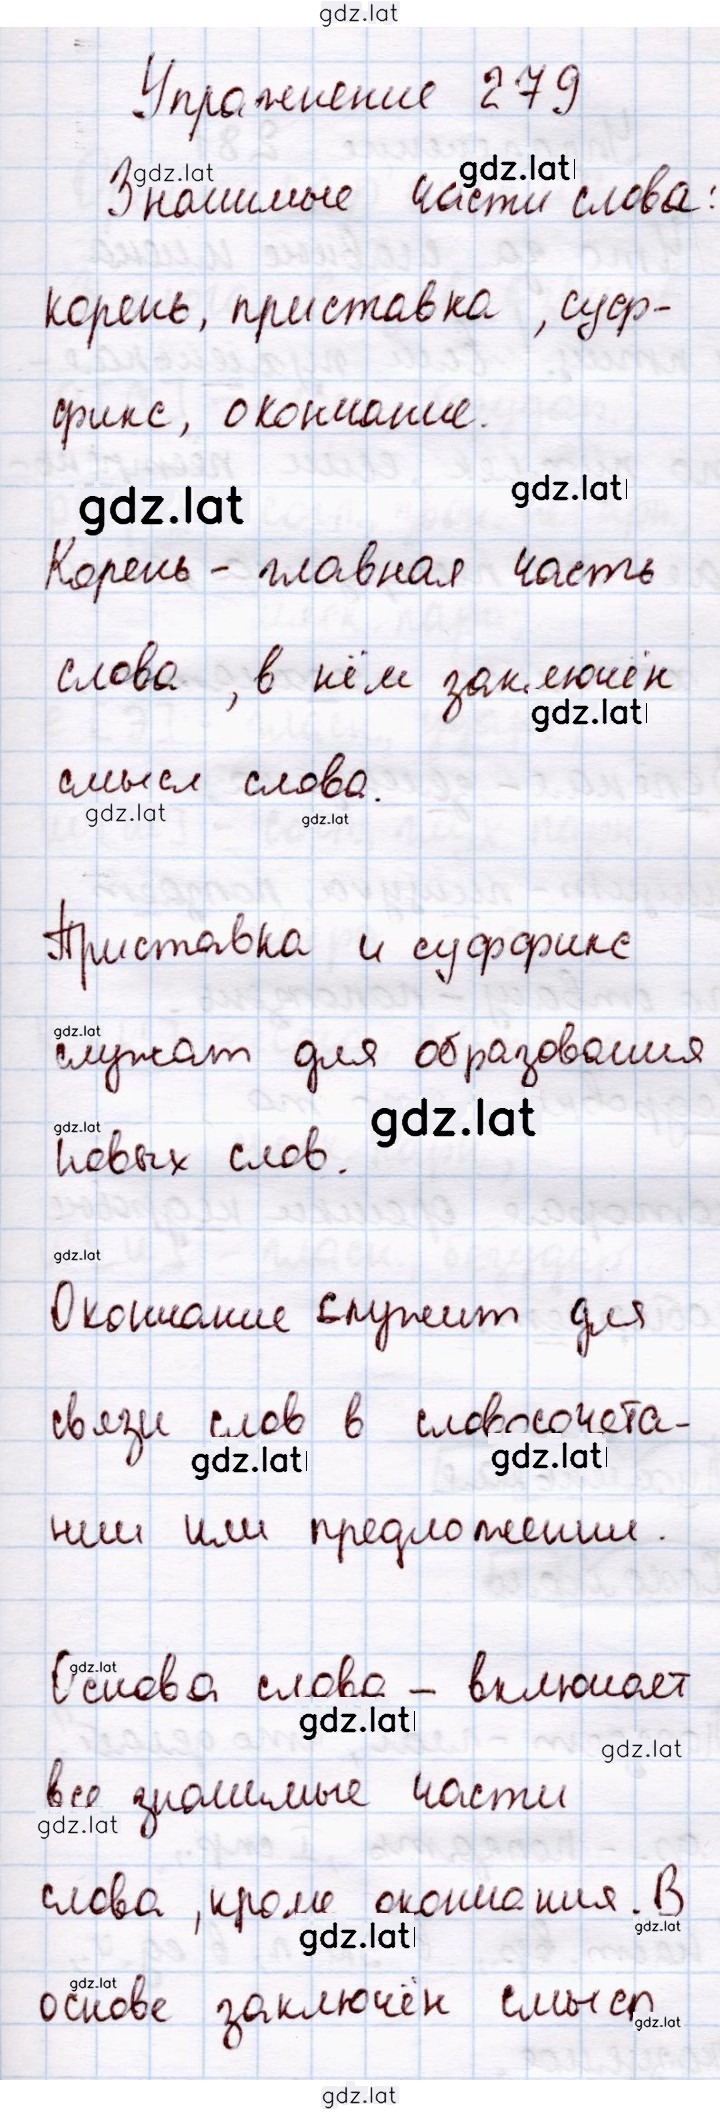 gdz.lat
Упражнение 279
gdz.lat gdz.lat
Значимые части слова:
корень, приставка, суф-
фикс, окончание.
gdz.lat gdz.lat
Корень - главная часть
слова, в нём заключён
gdz.lat
смысл слова.
gdz.lat gdz.lat
Приставка и суффикс
gdz.lat
служат для образования
gdz.lat
gdz.lat
новых слов.
gdz.lat
Окончание служит для
связи слов в словосочета-
gdz.lat gdz.lat
нии или предложении.
gdz.lat
Основа слова - включает
gdz.lat
gdz.lat
все значимые части
gdz.lat
слова, кроме окончания. В
gdz.lat gdz.lat
gdz.lat
основе заключён смысл
gdz.lat
gdz.lat